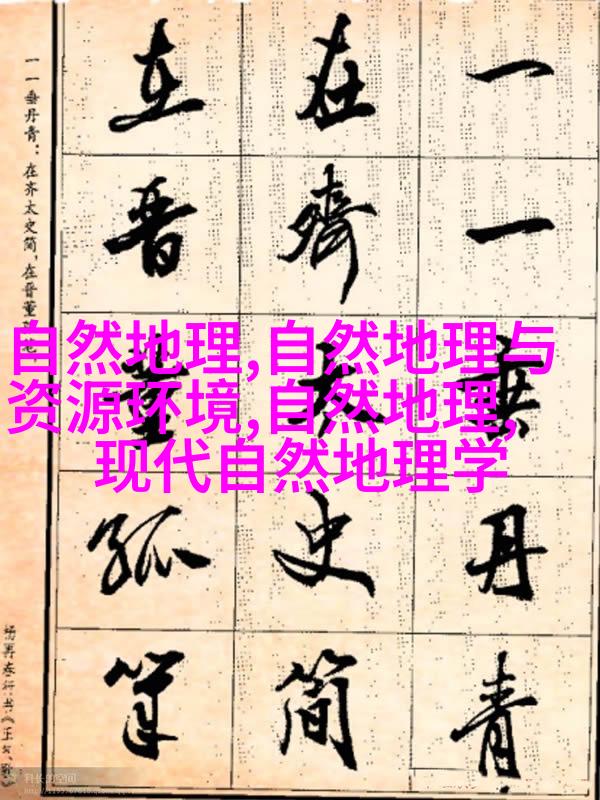 一一垂丹青
在齊太史简
在晋董狐筆
一一垂丹青：在齐太史简，在晋董
杨再春行书《正气歌》
自然地理,自然地理与
资源环境,自然地理,
现代自然地理学
科长的空间